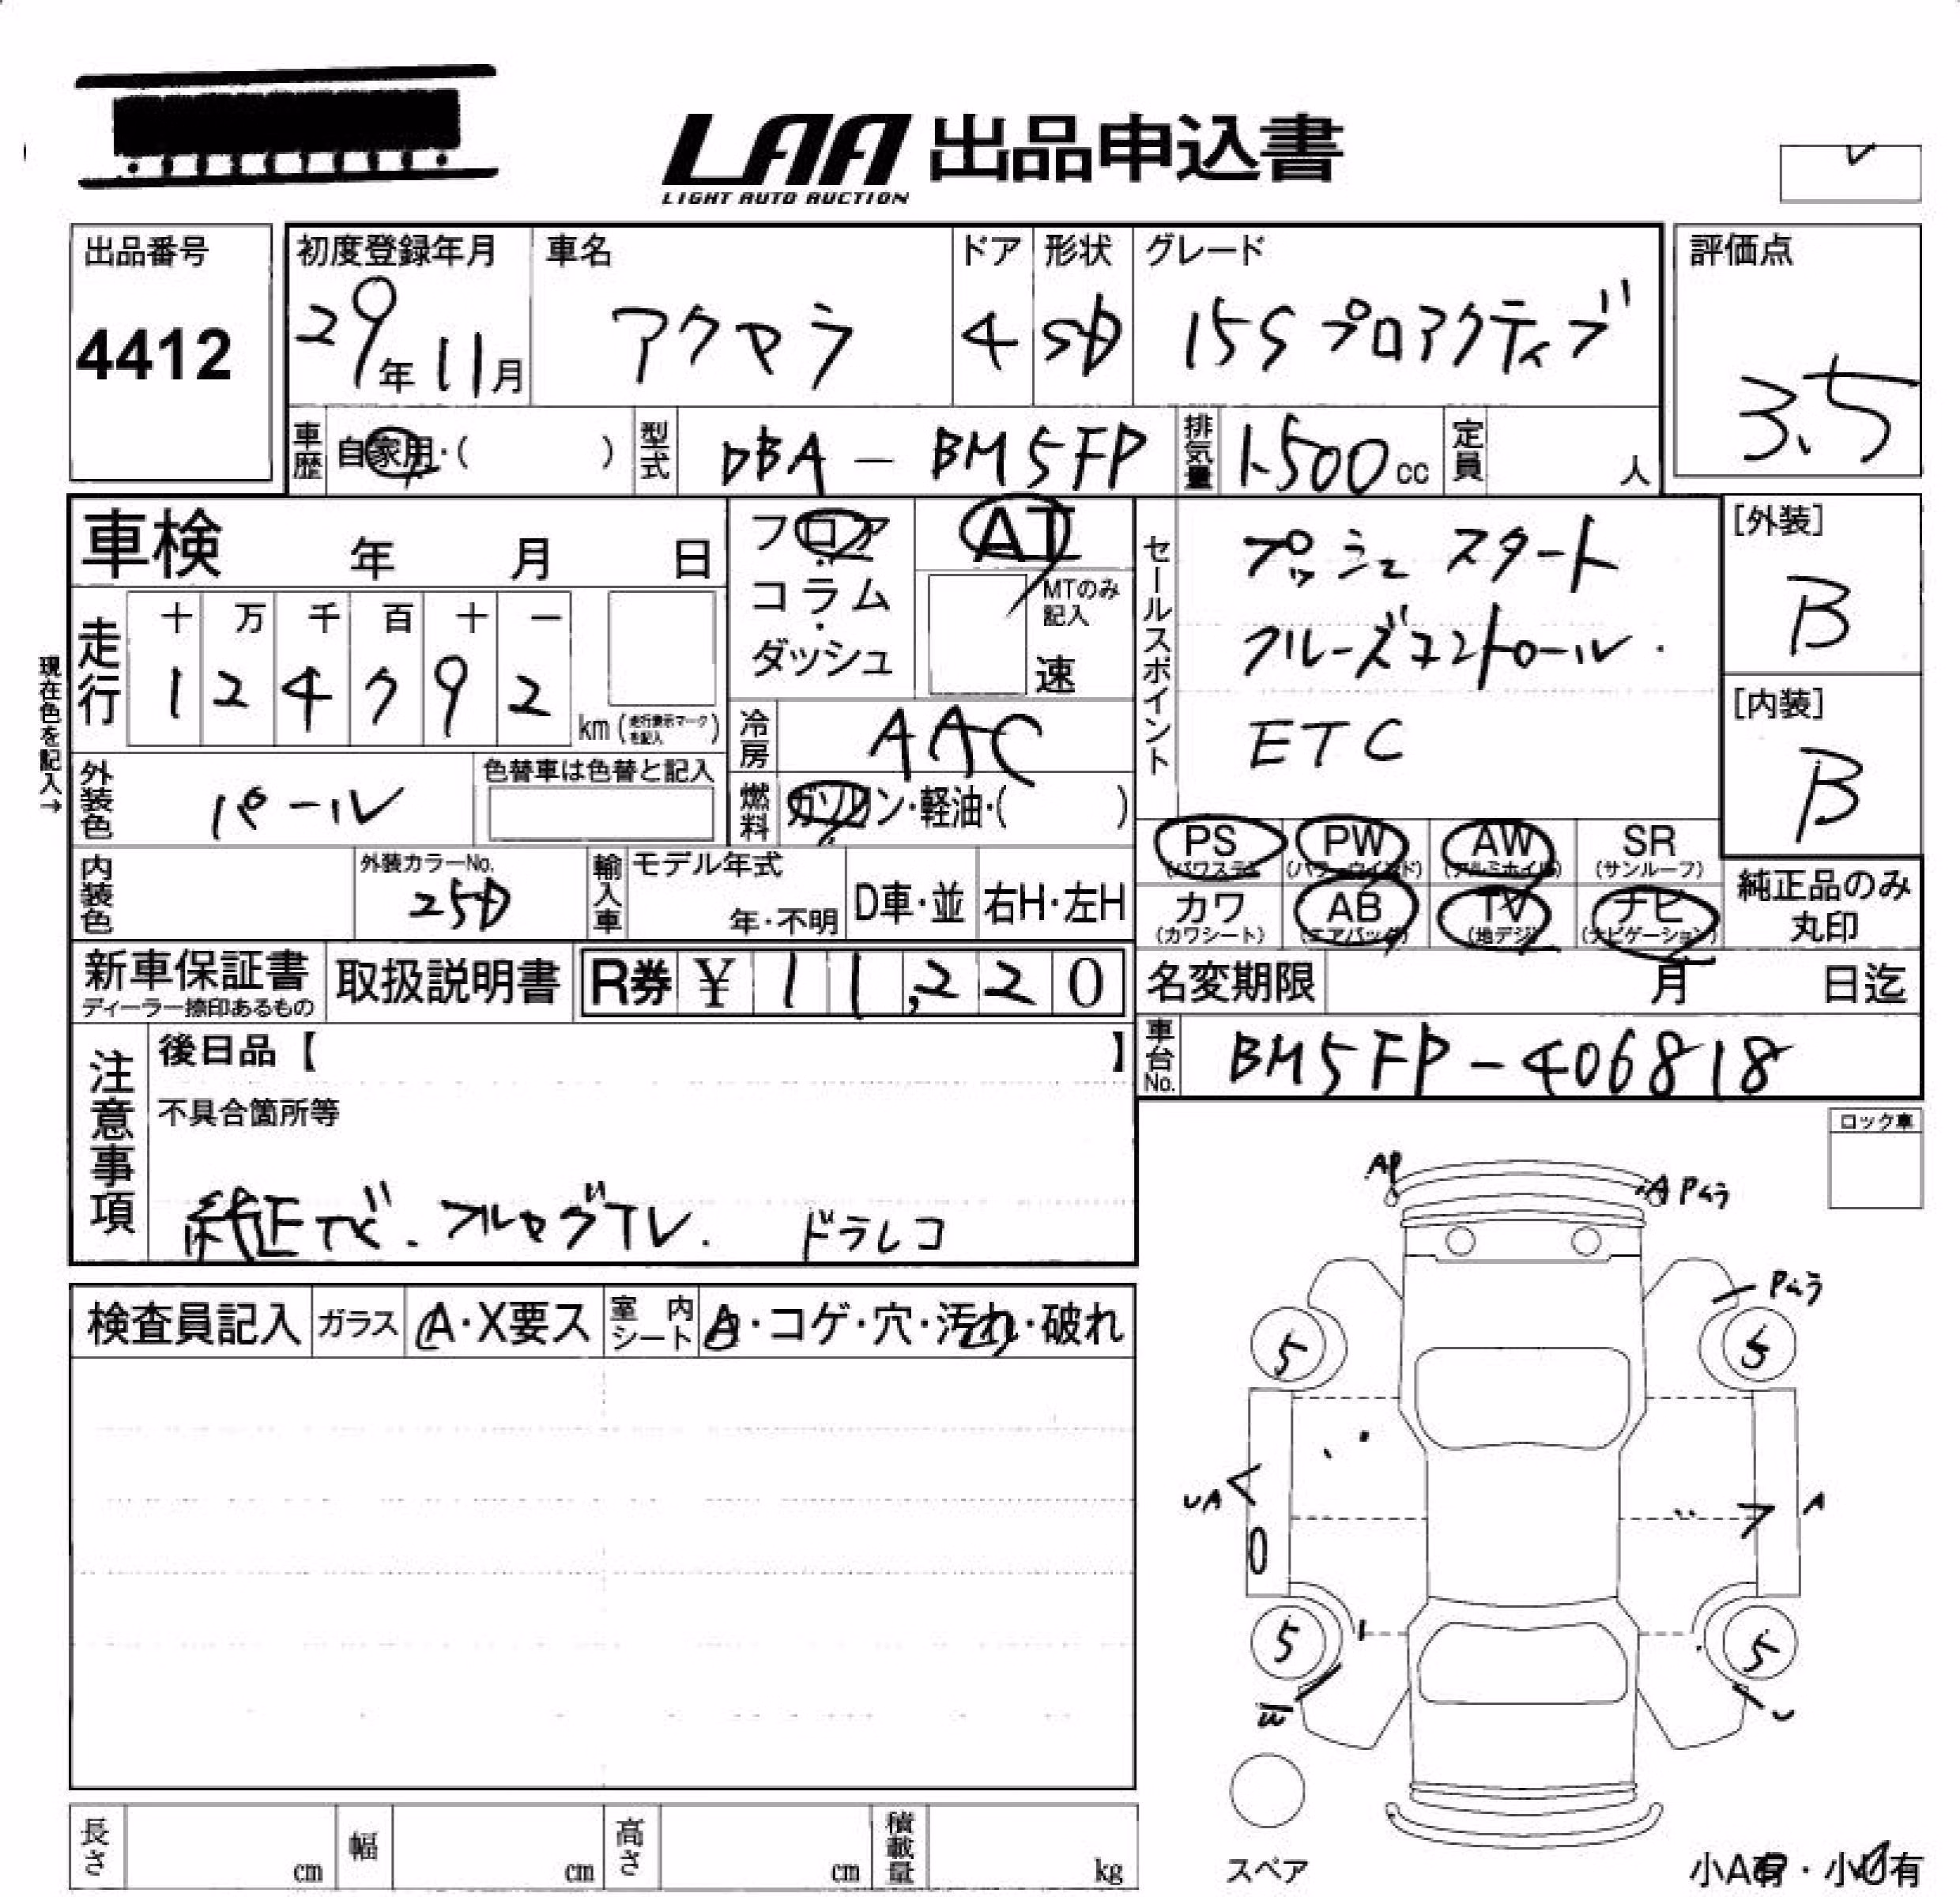 LAA 出品申込書
LIGHT AUTO AUCTION
出品番号
4412
初度登録年月
29年11月
車名
アクセラ
ドア
4
形状
SD
グレード
15S プロアクティブ
評価点
3.5
車歴 自家用・( )
型式 DBA-BM5FP
排気量 1500cc
定員 人
車検 年 月 日
フロア・コラム・ダッシュ
AT
MTのみ記入
速
走行
十 万 千 百 十 一
1 2 4 7 9 2
km (走行表示マークを記入)
現在色を記入→
冷房 AAC
外装色 パール
色替車は色替と記入
燃料 ガソリン・軽油・( )
セールスポイント
プッシュ スタート
クルーズコントロール.
ETC
[外装]
B
[内装]
B
PS
(パワステ)
PW
(パワーウインド)
AW
(アルミホイル)
SR
(サンルーフ)
カワ
(カワシート)
AB
(エアバッグ)
TV
(地デジ)
ナビ
(ナビゲーション)
純正品のみ
丸印
内装色
外装カラーNo.
25D
輸入車
モデル年式
年・不明
D車・並
右H・左H
新車保証書
ディーラー捺印あるもの
取扱説明書
R券 ¥ 11,220
名変期限 月 日迄
車台No. BM5FP-406818
注意事項
後日品【 】
不具合箇所等
純正ナビ. フルセグTV. ドラレコ
ロック車
検査員記入
ガラス A・X要ス
室内シート A・コゲ・穴・汚れ・破れ
AP
A Pムラ
Pムラ
5
5
UA
A
5
5
W
U
スペア
小A有・小U有
長さ cm
幅 cm
高さ cm
積載量 kg